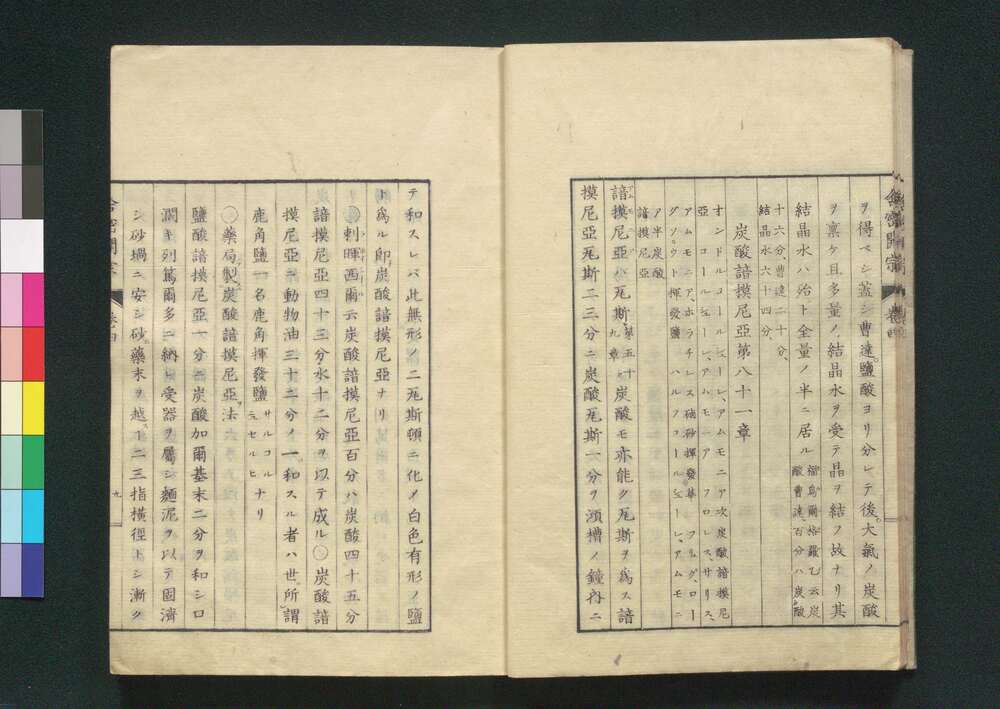 ヲ得ベシ蓋シ曹達鹽酸ヨリ分レテ後大氣ノ炭酸
ヲ稟ケ且多量ノ結晶水ヲ受テ晶ヲ結ブ故ナリ其
結晶水ハ殆ト全量ノ半ニ居ル
酸曹達百分ハ炭酸
十六分、曹達二十分、
結晶水六十四分、
炭酸諳摸尼亞第八十一章
オンドルコールシーレ、アムモニア次炭酸諳摸尼
亞コールシーレ、アムモニア フロレス、サリス、
アムモニア、ホラチレス硇砂揮發華
グソウト揮發鹽 ハルフコールシーレ、アムモニ
ア半炭酸
諳摸尼亞
諳摸尼亞ハ瓦斯第五十九章炭酸モ亦能ク瓦斯ヲ為ス諳
摸尼亞瓦斯二三分ニ炭酸瓦斯一分ヲ須槽ノ鐘內ニ
テ和スレバ此無形ノ二瓦斯頓ニ化メ白色有形ノ鹽
ト為ル卽炭酸諳摸尼亞ナリ
〇剌暉西爾云炭酸諳摸尼亞百分ハ炭酸四十五分
諳摸尼亞四十三分水十二分ヲ以テ成ル〇炭酸諳
摸尼亞ニ動物油三十二分ノ一和スル者ハ世所謂
鹿角鹽一名鹿角揮發鹽サルコルニュセルヒナリ
〇藥局製炭酸諳摸尼亞法
鹽酸諳摸尼亞一分ニ炭酸加爾基末二分ヲ和シロ
濶キ列篤爾多ニ納レ受器ヲ屬シ麵泥ヲ以テ固濟
シ砂堝ニ安シ砂藥末ヲ越ヿ二三指橫徑トシ漸ク
九